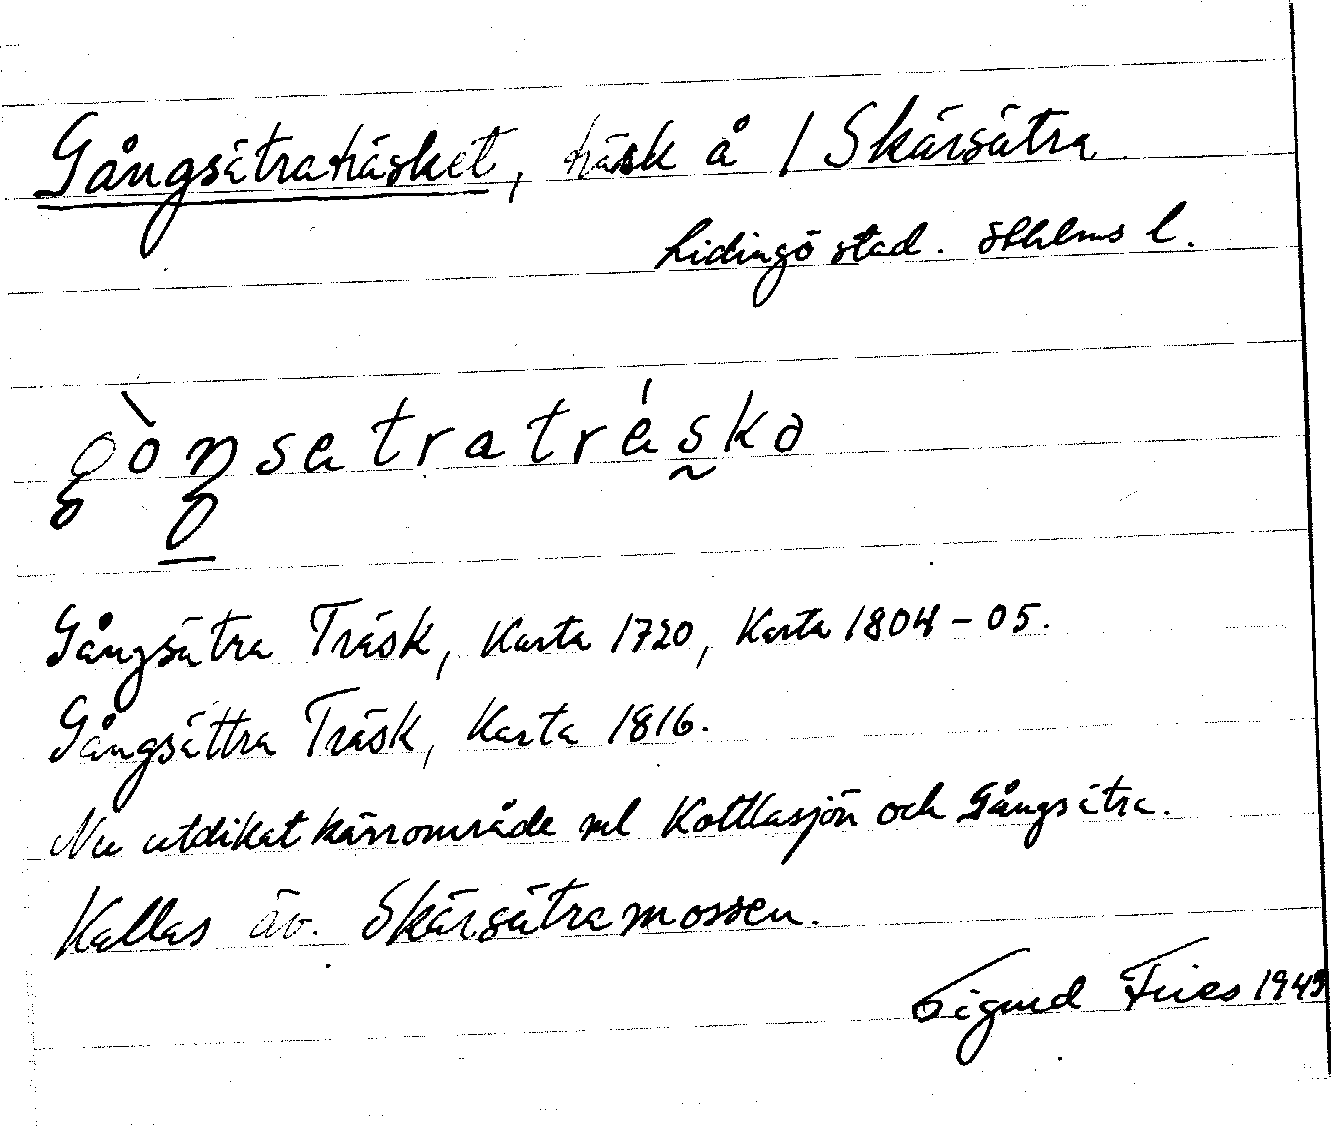 Gångsätraträsket, träsk å / Skärsätra
Lidingö stad. Sthlms l.
gòŋsatratrásko
Gångsätra Träsk, Karta 1720, Karta 1804-05.
Gångsättra Träsk, Karta 1816.
Nu utdikat kärrområde ml Kottlasjön och Gångsätra.
Kallas äv. Skärsätramossen.
Sigurd Fries 1949